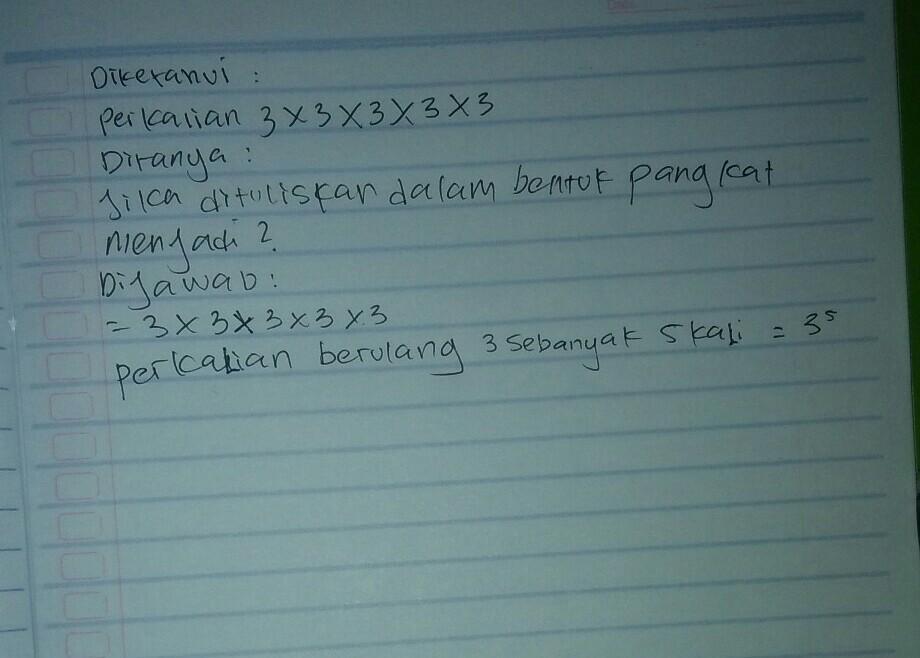 Diketahui :
Perkalian 3 x 3 x 3 x 3 x 3
Ditanya :
Jika dituliskan dalam bentuk pangkat
menjadi ?
Dijawab :
= 3 x 3 x 3 x 3 x 3
perkalian berulang 3 sebanyak 5 kali = 3⁵